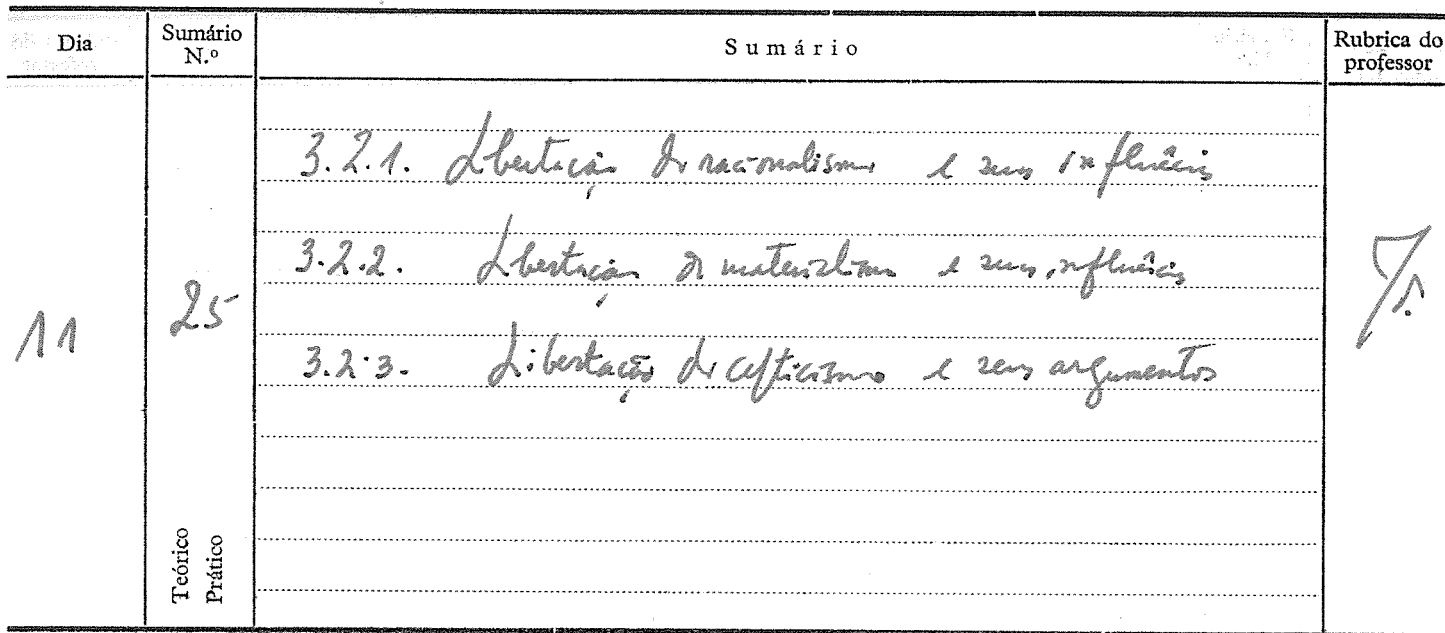 Dia
Sumário N.º
Sumário
Rubrica do professor
3.2.1. Libertação do racionalismo e suas influências
3.2.2. Libertação do materialismo e suas influências
11
25
3.2.3. Libertação do cepticismo e seus argumentos
Teórico
Prático